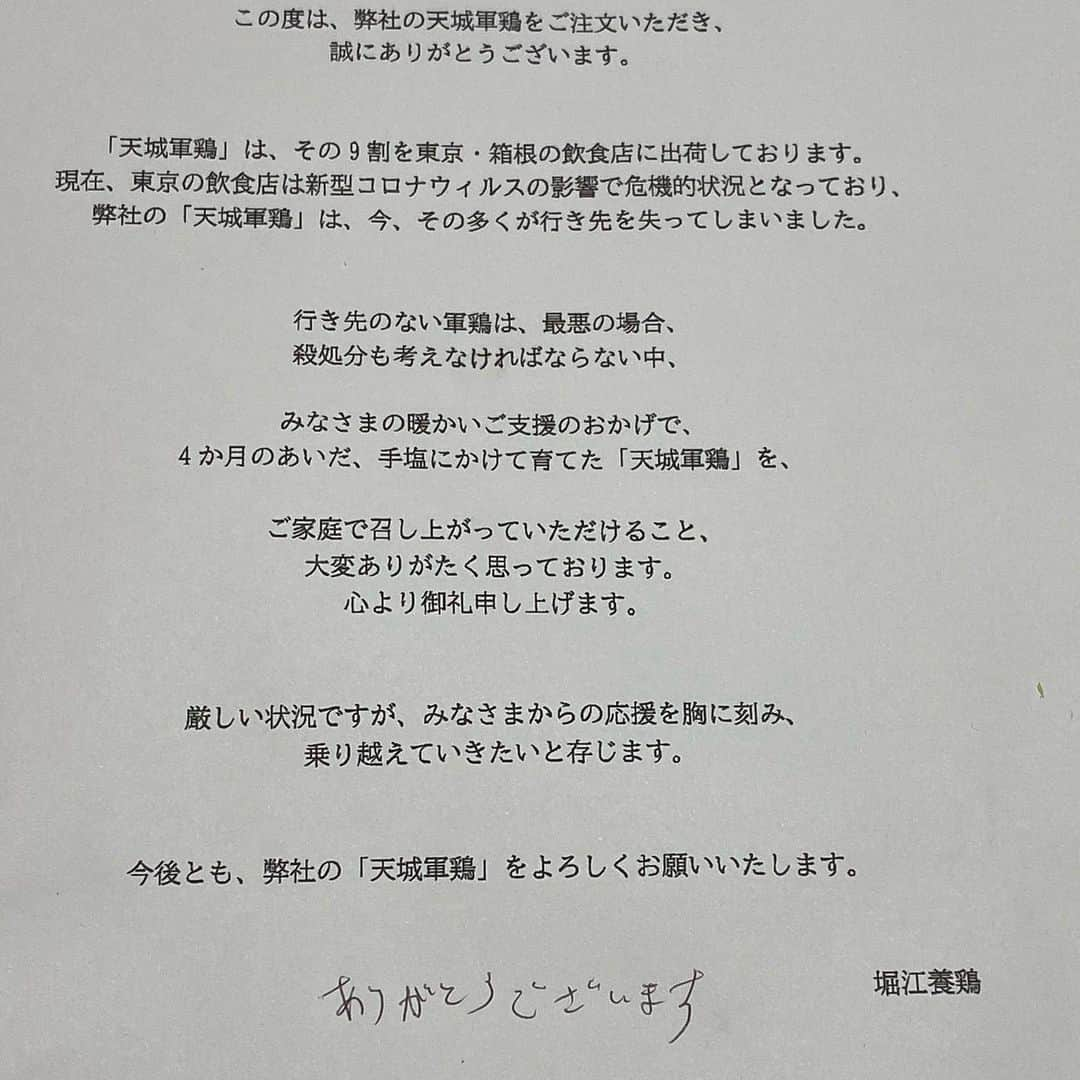 この度は、弊社の天城軍鶏をご注文いただき、
誠にありがとうございます。
「天城軍鶏」は、その9割を東京・箱根の飲食店に出荷しております。
現在、東京の飲食店は新型コロナウィルスの影響で危機的状況となっており、
弊社の「天城軍鶏」は、今、その多くが行き先を失ってしまいました。
行き先のない軍鶏は、最悪の場合、
殺処分も考えなければならない中、
みなさまの暖かいご支援のおかげで、
4か月のあいだ、手塩にかけて育てた「天城軍鶏」を、
ご家庭で召し上がっていただけること、
大変ありがたく思っております。
心より御礼申し上げます。
厳しい状況ですが、みなさまからの応援を胸に刻み、
乗り越えていきたいと存じます。
今後とも、弊社の「天城軍鶏」をよろしくお願いいたします。
堀江養鶏
ありがとうございます